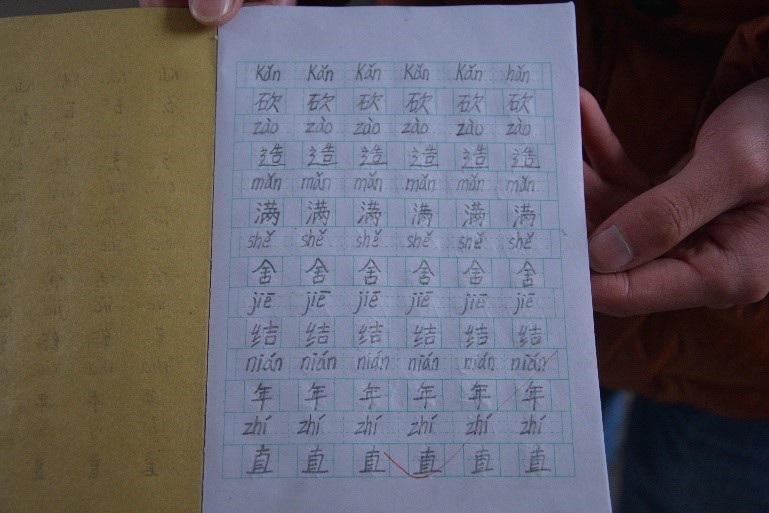 Kǎn Kǎn Kǎn Kǎn Kǎn hǎn
砍 砍 砍 砍 砍 砍
zào zào zào zào zào zào
造 造 造 造 造 造
mǎn mǎn mǎn mǎn mǎn mǎn
满 满 满 满 满 满
shě shě shě shě shě shě
舍 舍 舍 舍 舍 舍
jiē jiē jiē jiē jiē jiē
结 结 结 结 结 结
nián nián nián nián nián nián
年 年 年 年 年 年
zhí zhí zhí zhí zhí zhí
直 直 直 直 直 直